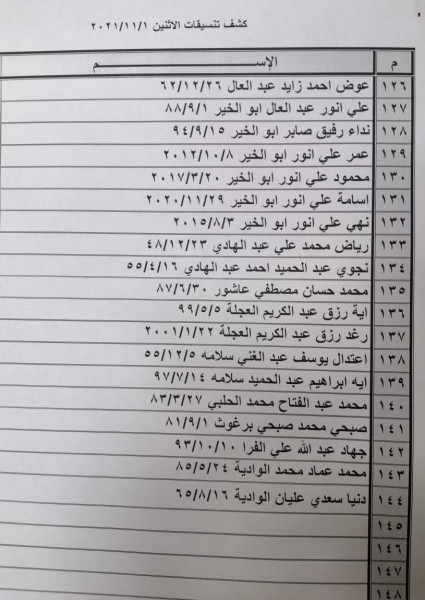 كشف تنسيقات الاثنين ٢٠٢١/١١/١
م الإســـــــــم
١٢٦ عوض احمد زايد عبد العال ٦٢/١٢/٢٦
١٢٧ علي انور عبد العال ابو الخير ٨٨/٩/١
١٢٨ نداء رفيق صابر ابو الخير ٩٤/٩/١٥
١٢٩ عمر علي انور ابو الخير ٢٠١٢/١٠/٨
١٣٠ محمود علي انور ابو الخير ٢٠١٧/٣/٢٠
١٣١ اسامة علي انور ابو الخير ٢٠٢٠/١١/٢٩
١٣٢ نهي علي انور ابو الخير ٢٠١٥/٨/٣
١٣٣ رياض محمد علي عبد الهادي ٤٨/١٢/٢٣
١٣٤ نجوي عبد الحميد احمد عبد الهادي ٥٥/٤/١٦
١٣٥ محمد حسان مصطفي عاشور ٨٧/٦/٣٠
١٣٦ اية رزق عبد الكريم العجلة ٩٩/٥/٥
١٣٧ رغد رزق عبد الكريم العجلة ٢٠٠١/١/٢٢
١٣٨ اعتدال يوسف عبد الغني سلامه ٥٥/١٢/٥
١٣٩ ايه ابراهيم عبد الحميد سلامه ٩٧/٧/١٤
١٤٠ محمد عبد الفتاح محمد الحلبي ٨٣/٣/٢٧
١٤١ صبحي محمد صبحي برغوث ٨١/٩/١
١٤٢ جهاد عبد الله علي الفرا ٩٣/١٠/١٠
١٤٣ محمد عماد محمد الوادية ٨٥/٥/٢٤
١٤٤ دنيا سعدي عليان الوادية ٦٥/٨/١٦
١٤٥
١٤٦
١٤٧
١٤٨